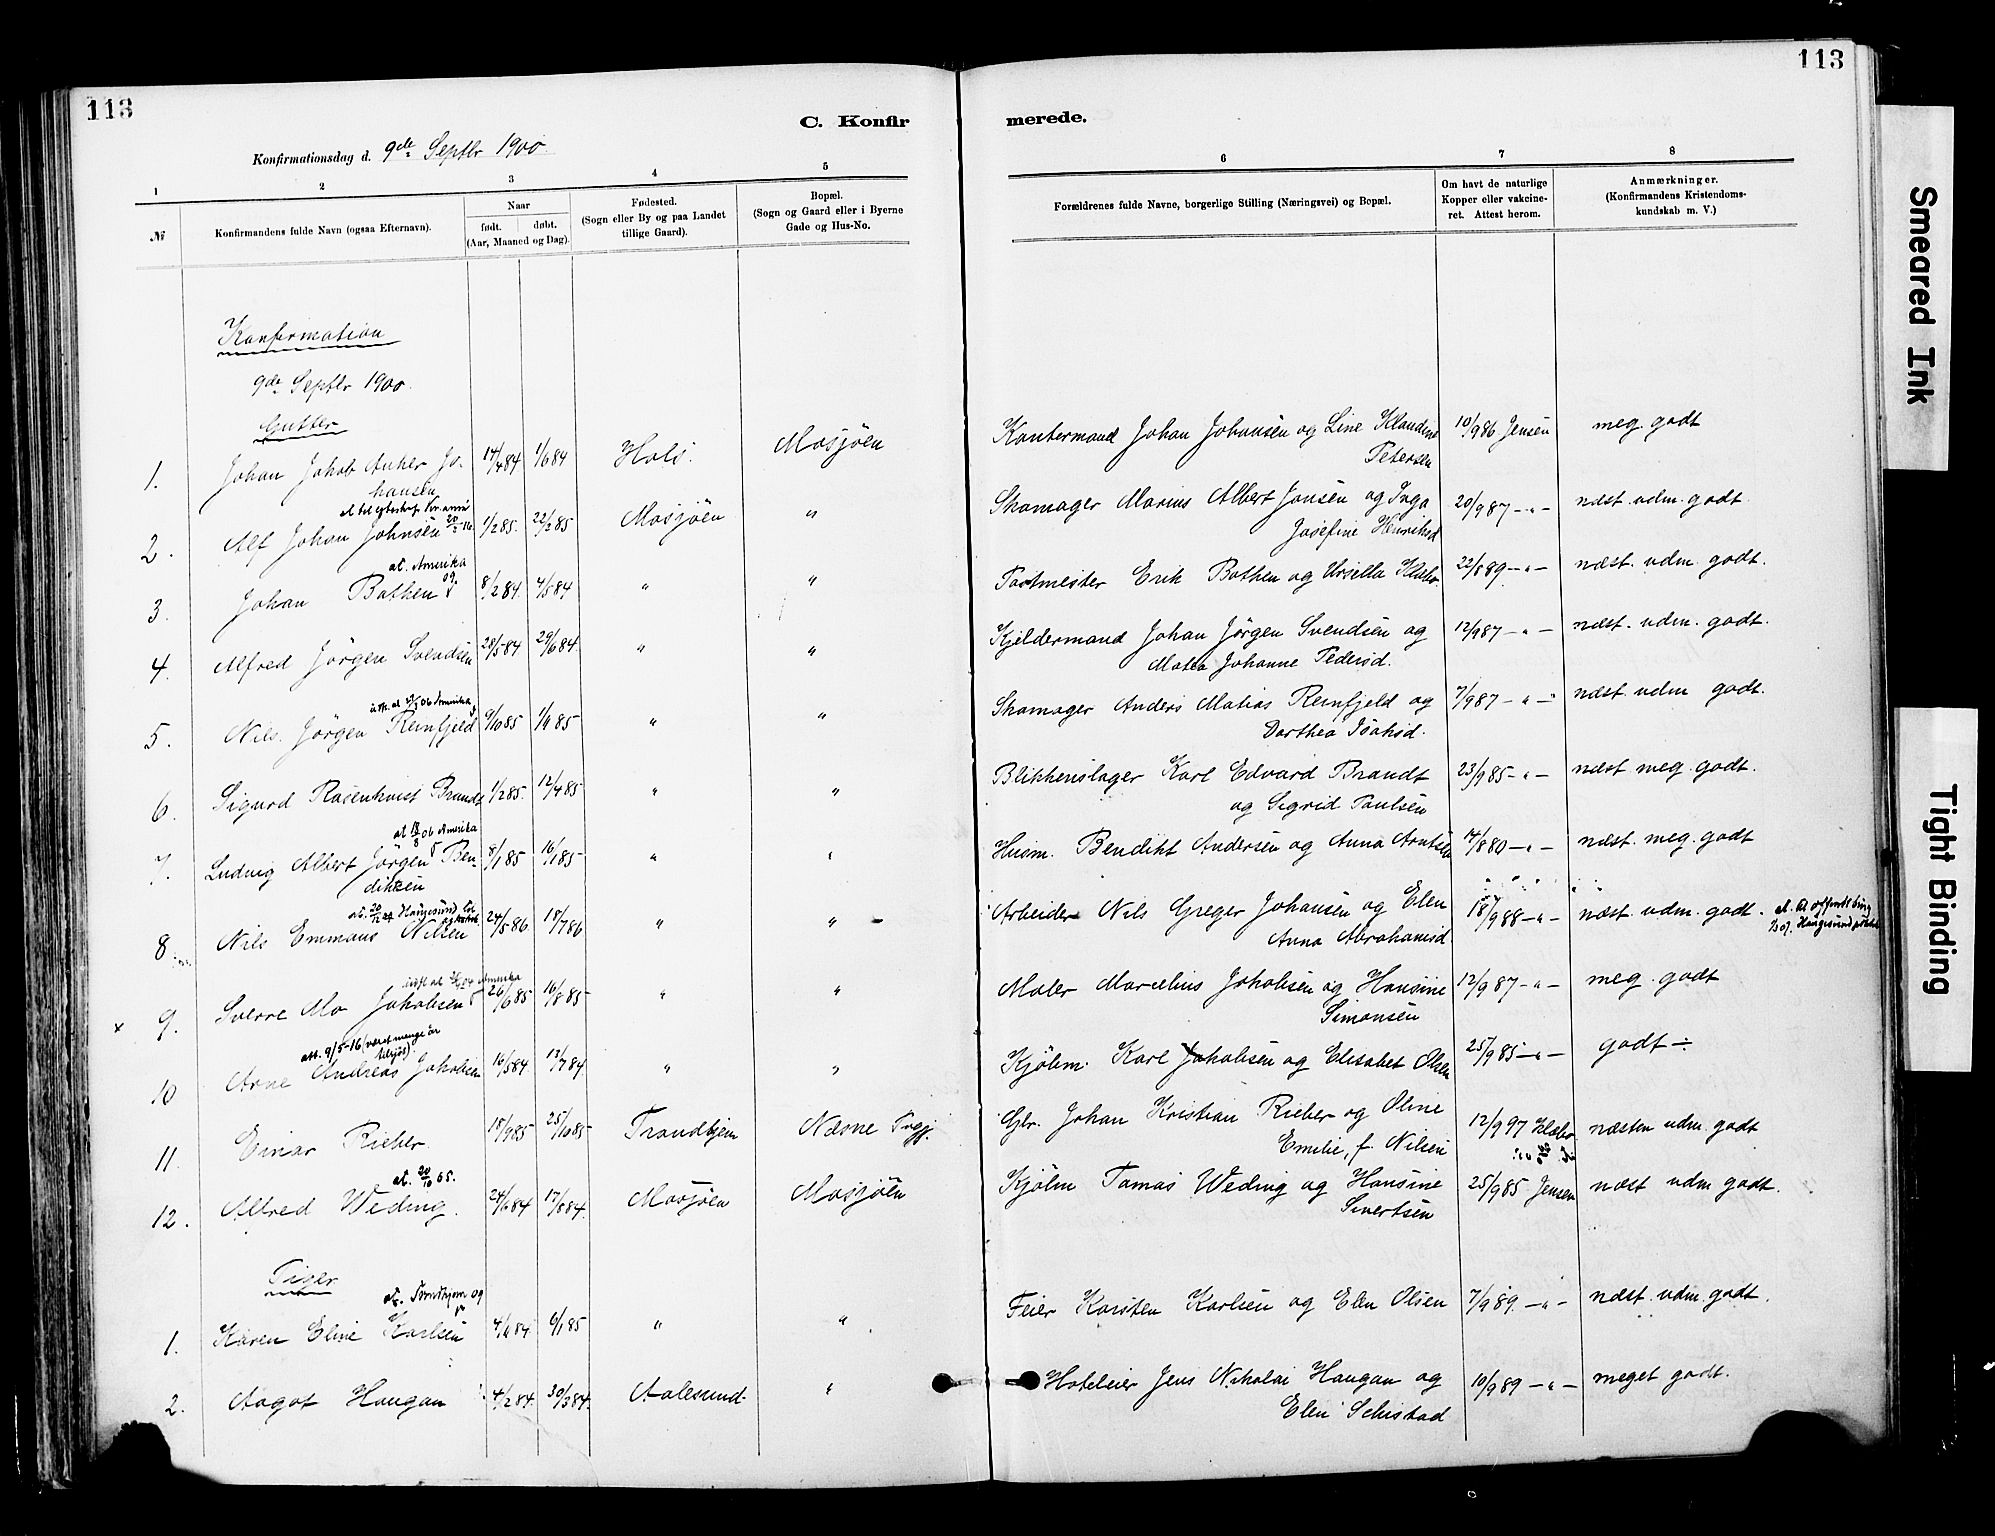 113
113
C. Konfir
merede.
Konfirmationsdag d. 9de Septbr 1900.
1 2 3 4 5 6 7 8
№
Konfirmandens fulde Navn (ogsaa Efternavn).
Naar
født. døbt.
(Aar, Maaned og Dag).
Fødested.
(Sogn eller By og paa Landet
tillige Gaard).
Bopæl.
(Sogn og Gaard eller i Byerne
Gade og Hus-No.
Forældrenes fulde Navne, borgerlige Stilling (Næringsvei) og Bopæl.
Om havt de naturlige
Kopper eller vakcine-
ret. Attest herom.
Anmærkninger.
(Konfirmandens Kristendoms-
kundskab m. V.)
Konfirmation
9de Septbr 1900.
Gutter
1. Johan Jakob Anker Jo- 14/4 84 1/6 84 Hals. Mosjöen Kontermand Johan Johansen og Line Klaudine 10/9 86 Jensen meg. godt
hansen Petersen
2. Alf Johan Johnsen 1/2 85. 22/2 85 Mosjöen " Skomager Marius Albert Jonsen og Inga 20/9 87 - " - næst. udm. godt
Josefine Henriksd
at. Amerika
09.
3. Johan Bathen 8/2 84. 4/5 84 " " Postmester Erik Bathen og Ursella Klæbo 22/8 89 - " - næst. udm. godt.
4. Alfred Jörgen Svendsen 28/5 84 29/6 84. " " Kjeldermand Johan Jörgen Svendsen og 12/9 87 - " - næst. udm. godt.
Matea Johanne Pedersd.
5. Nils Jörgen Reinfjeld 9/10 85 1/11 85 " " Skomager Anders Matias Reinfjeld og 7/9 87 - " - næst. udm godt.
Dorthea Isaksd.
6. Sigurd Rosenkvist Brandt 1/2 85. 12/4 85 " " Blikkenslager Karl Edvard Brandt 23/9 85 - " - næst meg. godt.
og Sigrid Paulsen
at 18/8 06 Amerika
7. Ludvig Albert Jörgen Ben- 8/1 85 16/1 85 " " Husm. Bendikt Andersen og Anna Arntsen 14/8 80 - " - næst. meg. godt
diktsen
at. 20/12 24 Haugesund
8. Nils Emmaus Nilsen 24/5 86. 18/7 86 " " Arbeider Nils Greger Johansen og Elen 18/9 88 - " - næst. udm. godt.
Anna Abrahamsd.
x 9. Sverre Mo Jakobsen 26/6 85 16/8 85 " " Maler Marcelius Jakobsen og Hansine 12/9 87 - " - meg. godt
Simonsen
att. 9/5-16 (været mange år
tilsjös)
10 Arne Andreas Jakobsen 16/5 84. 13/7 84 " " Kjöbm. Karl Jakobsen og Elisabet Olsen 25/9 85 - " - godt ÷
11. Einar Rieber 18/9 85 25/10 85 Trondhjem Næsne Prgj. Gbr. Johan Kristian Rieber og Oline 12/9 97 Klæbo næsten udm. godt
Emilie, f. Nilsen
at. 20/10 05.
12. Alfred Weding. 24/6 84 17/8 84. Mosjöen Mosjöen Kjöbm Tomas Weding og Hansine 25/9 85 Jensen næst udm godt.
Sivertsen
Piger
at. Trondhjem 09
1. Karen Eline Karlsen 4/11 84. 6/1 85 " " Feier Karsten Karlsen og Elen Olsen 7/9 89. - " - næst. udm. godt.
2. Aagot Haugan 4/2 84. 30/3 84. Aalesund. " Hoteleier Jens Nikolai Haugan og 10/9 89 - " - meget godt.
Elen Schistad
Smeared Ink
Tight Binding